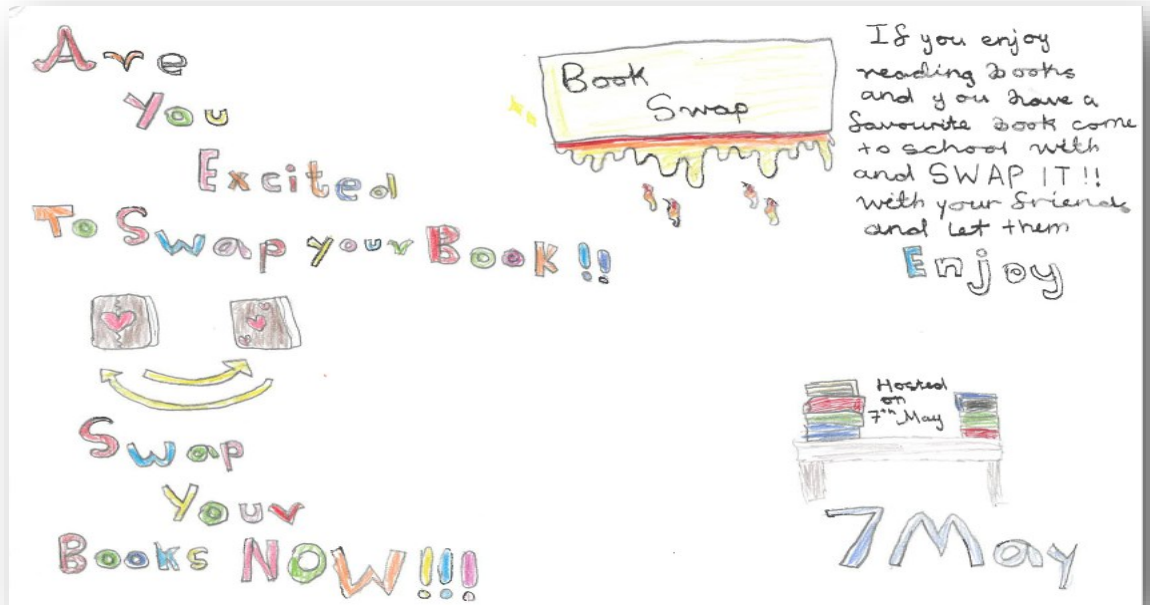 Are
You
Excited
To Swap your Book!!
Swap
Your
Books NOW!!!
Book
Swap
If you enjoy
reading books
and you have a
favourite book come
to school with
and SWAP IT!!
with your friends
and let them
Enjoy
Hosted
on
7th May
7 May